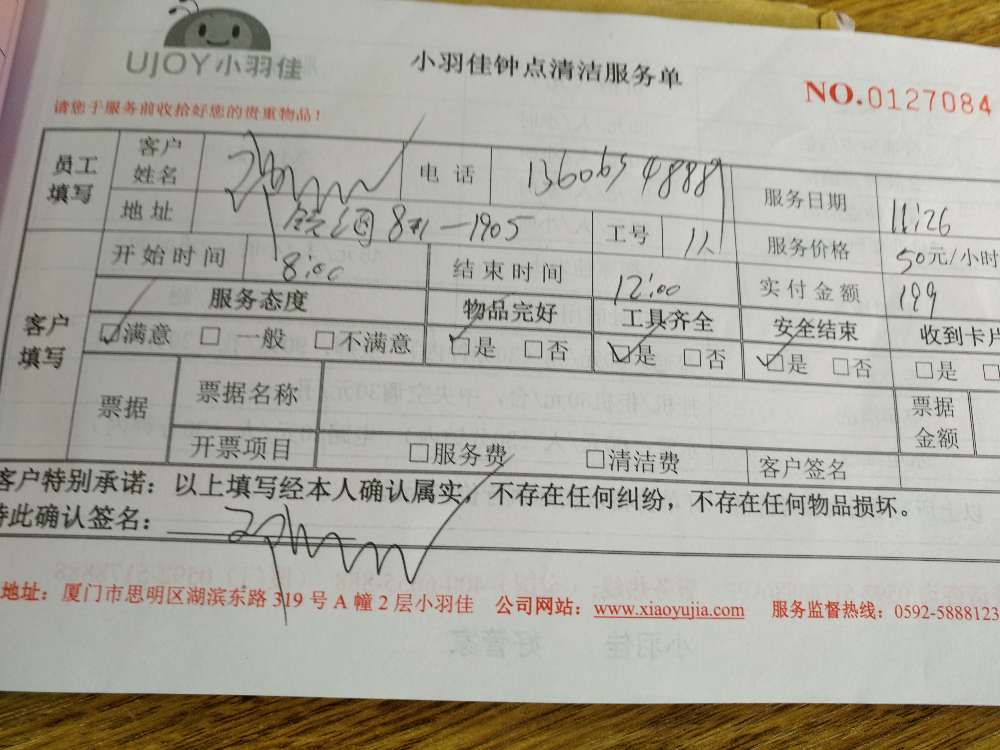 UJOY小羽佳
小羽佳钟点清洁服务单
NO.0127084
请您于服务前收拾好您的贵重物品！
员工填写 客户姓名 电话 服务日期 11:26
地址 8#-1905 工号 服务价格 50元/小时
客户填写 开始时间 8:00 结束时间 12:00 实付金额 199
服务态度 物品完好 工具齐全 安全结束 收到卡片
☑满意 □一般 □不满意 ☑是 □否 ☑是 □否 ☑是 □否 □是 □
票据 票据名称 票据金额
开票项目 □服务费 □清洁费 客户签名
客户特别承诺：以上填写经本人确认属实，不存在任何纠纷，不存在任何物品损坏。
特此确认签名：
地址：厦门市思明区湖滨东路 319 号 A 幢 2 层小羽佳 公司网站：www.xiaoyujia.com 服务监督热线：0592-5888123